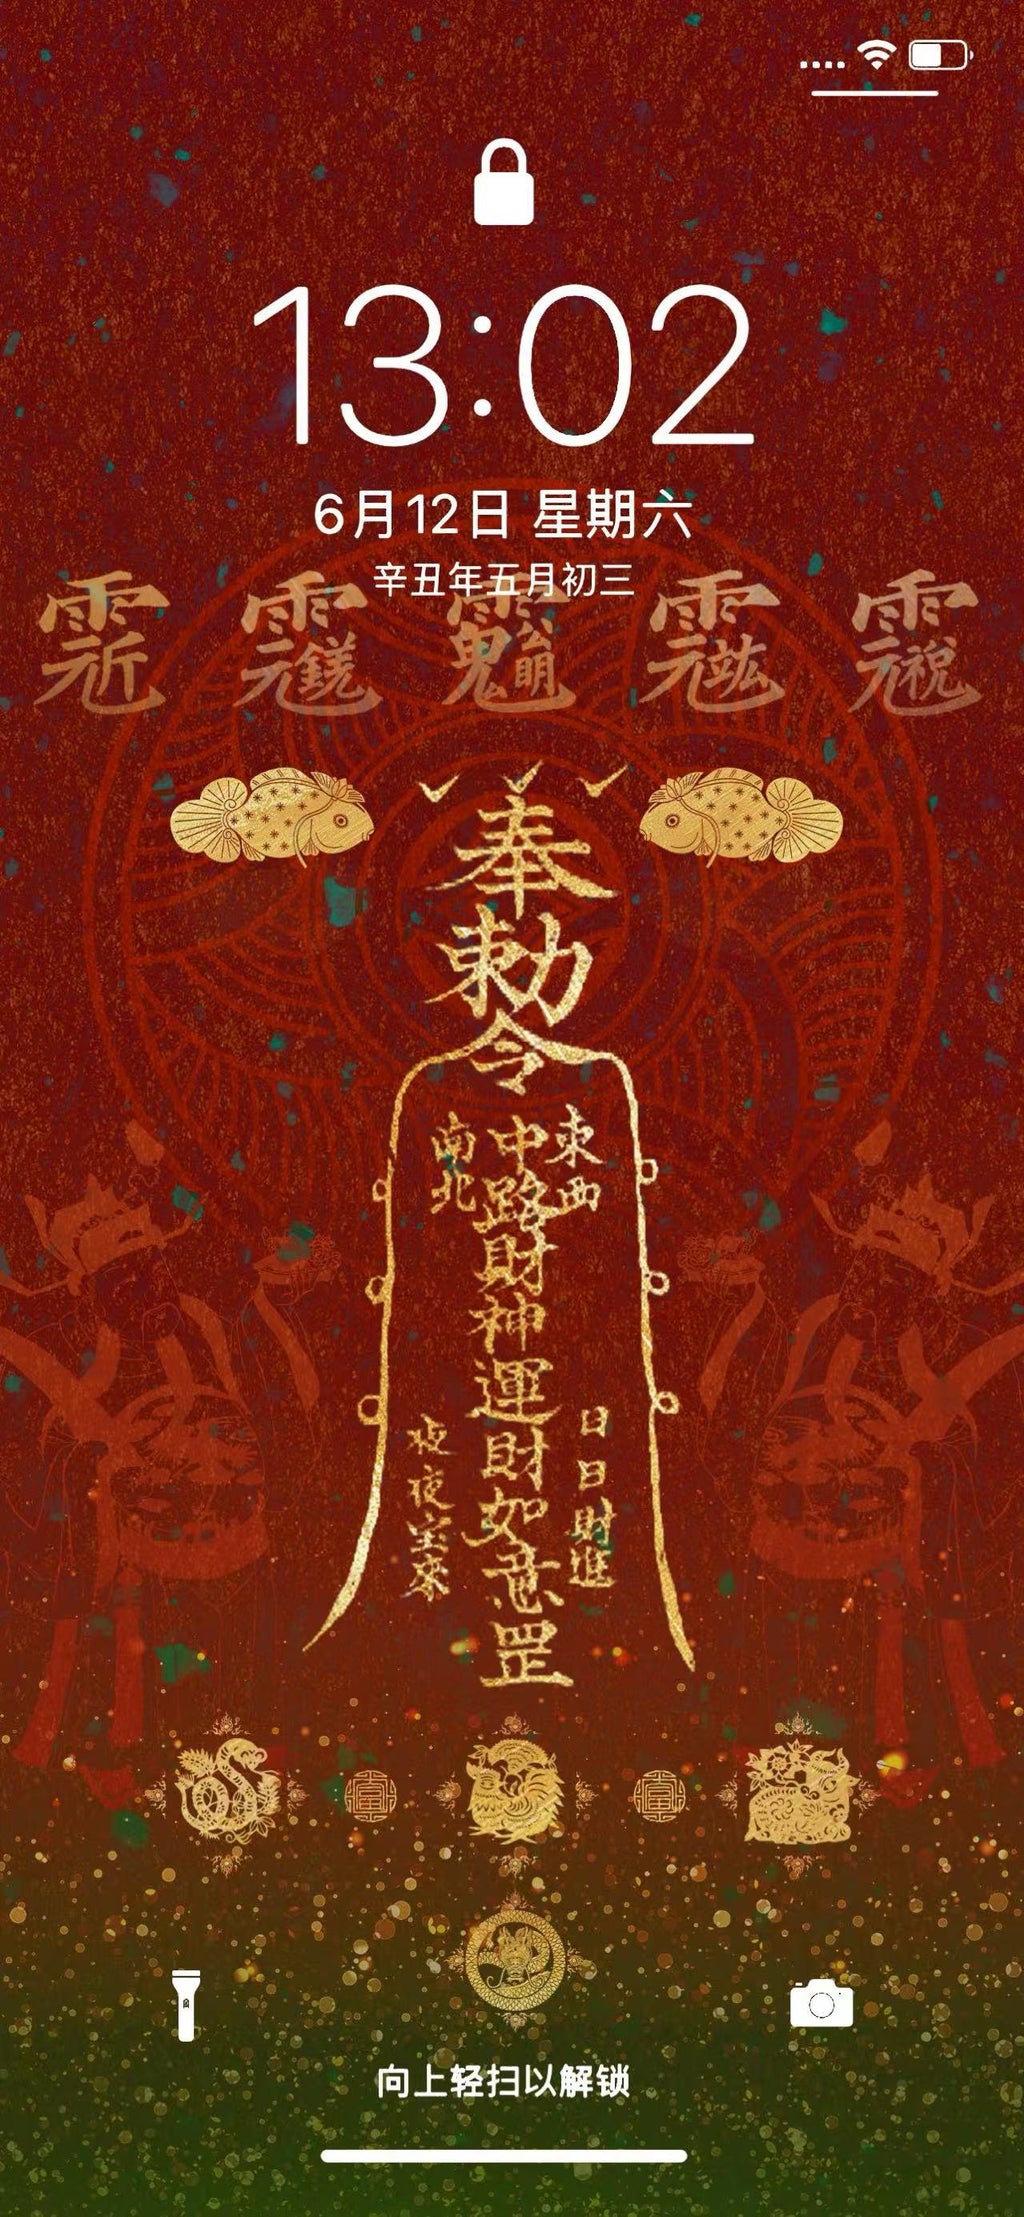 13:02
6月12日 星期六
辛丑年五月初三
奉
勅
令
東西
南北
中路財神運財如意罡
日日財進
夜夜宝來
向上轻扫以解锁